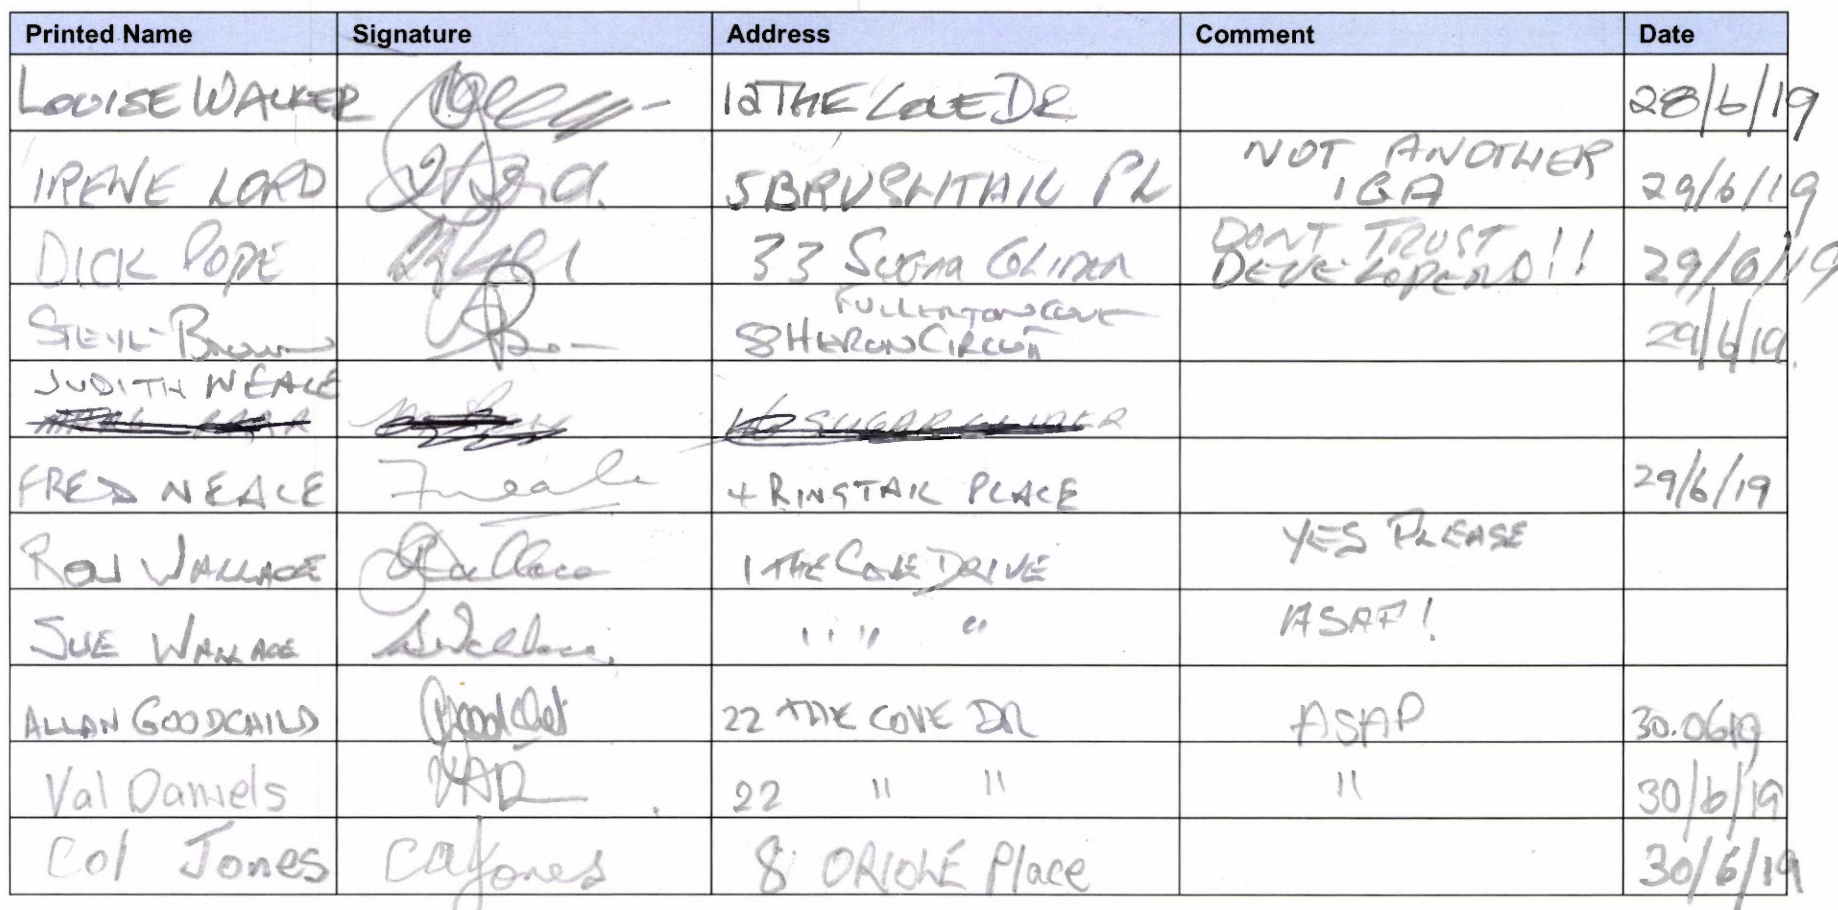 Printed Name Signature Address Comment Date
LOUISE WALKER 12 THE COVE DR 28/6/19
IRENE LORD 5 BRUSHTAIL PL NOT ANOTHER IGA 29/6/19
DICK POPE 33 SUGAR GLIDER DONT TRUST DEVELOPERS!! 29/6/19
STEVE BROWN FULLERTON COVE
8 HERON CIRCUIT 29/6/19
JUDITH NEALE
SUGAR GLIDER
FRED NEALE F Neale 4 RINGTAIL PLACE 29/6/19
RON WALLACE RWallace 1 THE COVE DRIVE YES PLEASE
SUE WALLACE SWallace " " " ASAP!
ALLAN GOODCHILD 22 THE COVE DR ASAP 30.06.19
Val Daniels VAD 22 " " " 30/6/19
Col Jones CAJones 8 ORIOLE Place 30/6/19